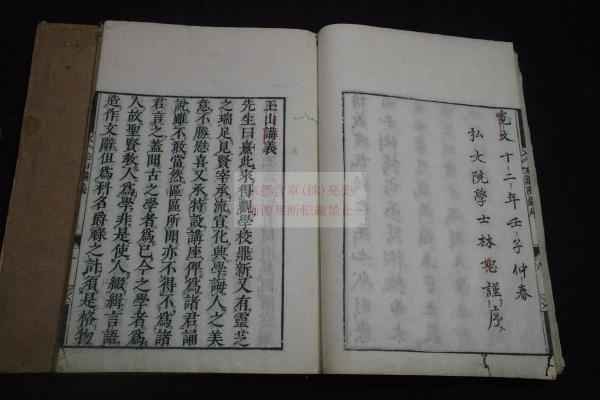 寛文十二年壬子仲春
弘文院學士林 謹序
玉山講義
先生曰熹此來得觀學校鼎新又有靈芝
之瑞足見賢宰承流宣化興學誨人之美
意不勝慰喜又承特設講座俾爲諸君誦
說雖不敢當然區區所聞亦不得不爲諸
君言之蓋聞古之學者爲己今之學者爲
人故聖賢敎人爲學非是使人綴緝言語
造作文辭但爲科名爵祿之計須是格物
京都合章(株)発売
画像無断転載禁止